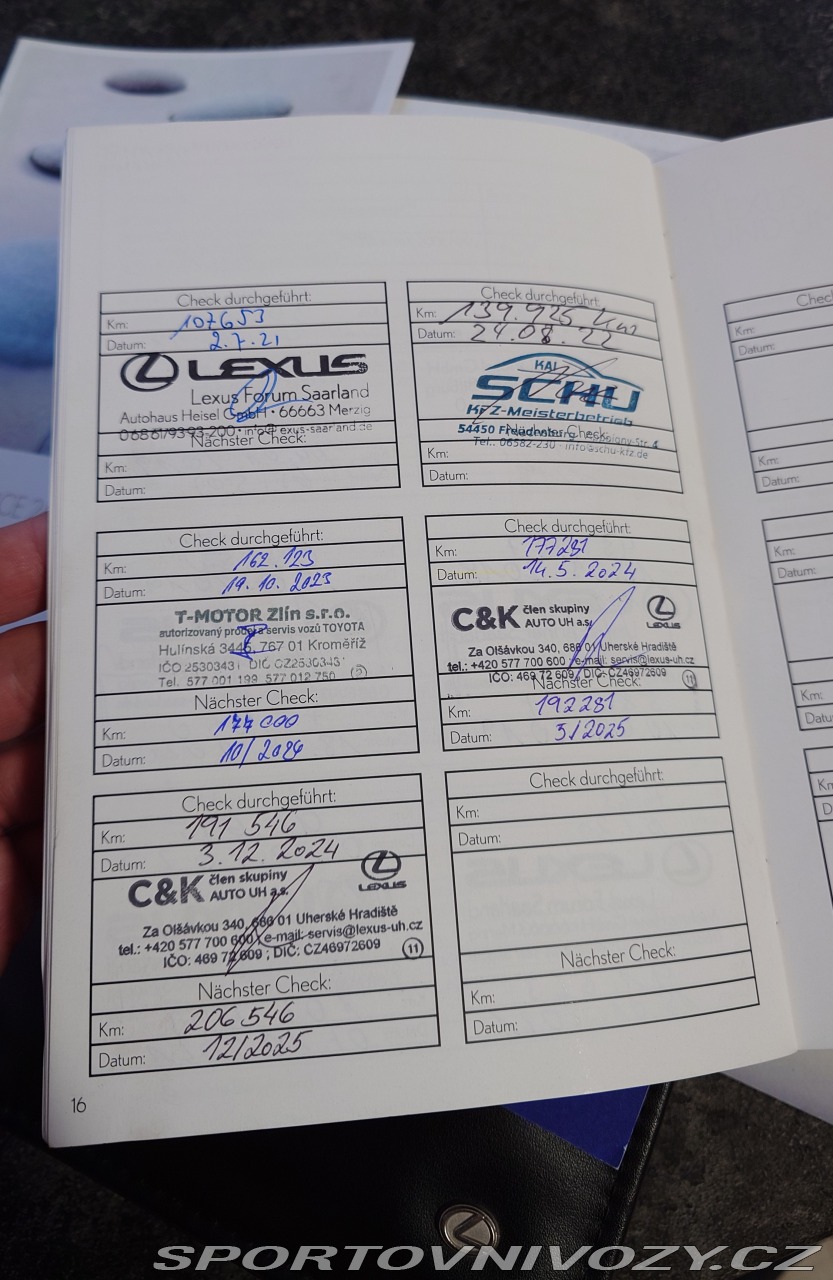 Check durchgeführt:
Km: 107653
Datum: 2.7.21
LEXUS
Lexus Forum Saarland
Autohaus Heisel GmbH • 66663 Merzig
06861/9393-200 • info@lexus-saarland.de
Nächster Check:
Km:
Datum:
Check durchgeführt:
Km: 139.925 km
Datum: 24.08.22
KAI
SCHU
KFZ-Meisterbetrieb
54450 Freudenburg
Nächster Check:
Tel.: 06582-230 · info@schu-kfz.de
Km:
Datum:
Check durchgeführt:
Km: 162.123
Datum: 19.10.2023
T-MOTOR Zlín s.r.o.
autorizovaný prodej a servis vozů TOYOTA
Hulínská 3445, 767 01 Kroměříž
IČO 2530343 DIČ CZ2530343
Tel. 577 001 199 577 012 750
Nächster Check:
Km: 177000
Datum: 10/2024
Check durchgeführt:
Km: 177281
Datum: 14.5.2024
C&K člen skupiny
AUTO UH a.s.
LEXUS
Za Olšávkou 340, 686 01 Uherské Hradiště
tel.: +420 577 700 600 , e-mail: servis@lexus-uh.cz
IČO: 469 72 609 , DIČ: CZ46972609
11
Nächster Check:
Km: 192281
Datum: 5/2025
Check durchgeführt:
Km: 191 546
Datum: 3.12.2024
C&K člen skupiny
AUTO UH a.s.
LEXUS
Za Olšávkou 340, 686 01 Uherské Hradiště
tel.: +420 577 700 600 , e-mail: servis@lexus-uh.cz
IČO: 469 72 609 ; DIČ: CZ46972609
11
Nächster Check:
Km: 206546
Datum: 12/2025
Check durchgeführt:
Km:
Datum:
Nächster Check:
Km:
Datum:
16
Km:
Datum:
Km:
Datum:
Km:
Datum:
Km:
SPORTOVNIVOZY.CZ